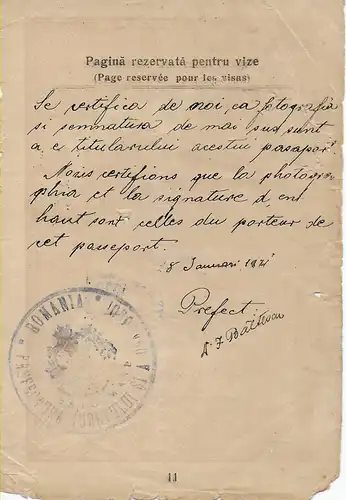 Pagină rezervată pentru vize
(Page reservée pour les visas)
Se certifica de noi, ca fotografia
si semnatura de mai sus sunt
a titularului acestui pasaport
Nous certifions que la photogra-
phia et la signature d'en
haut sont celles du porteur de
cet passeport.
8 Januari 192
Prefect.
ROMANIA
PREFECTURA JUDEȚULUI
11